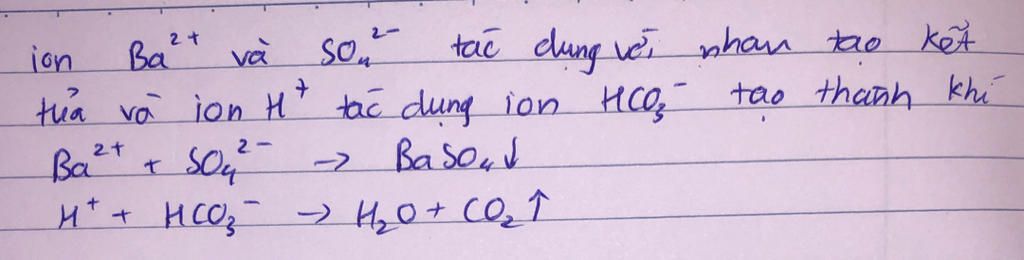 ion Ba²⁺ và SO₄²⁻ tác dụng với nhau tạo kết
tủa và ion H⁺ tác dụng ion HCO₃⁻ tạo thành khí
Ba²⁺ + SO₄²⁻ → BaSO₄↓
H⁺ + HCO₃⁻ → H₂O + CO₂↑